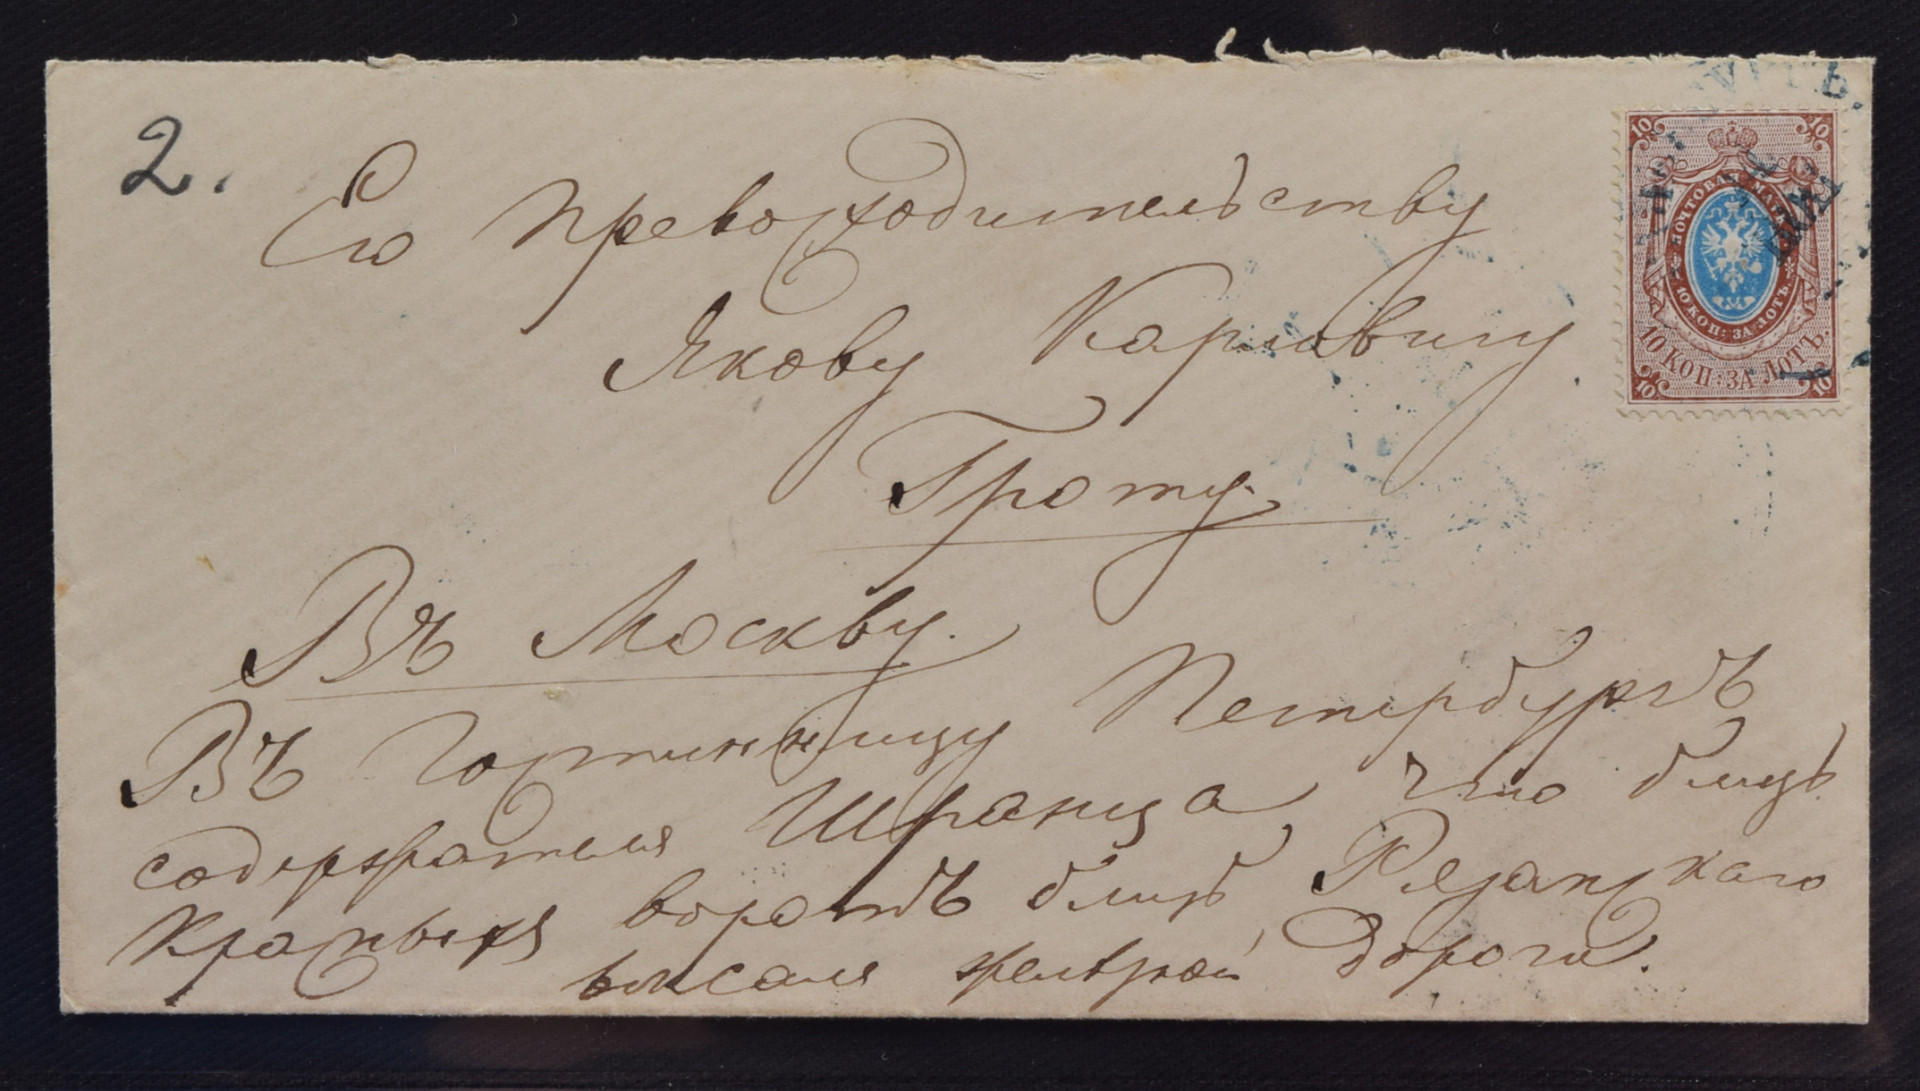 2.
Его Превосходительству
Якову Карловичу
Гроту.
Въ Москву.
Въ Гостинницу Петербургъ
содержателя Шранца, что близъ
Красныхъ воротъ близъ Рязанскаго
вокзала желѣзной дороги.
ПОЧТОВАЯ МАРКА
10 КОП: ЗА ЛОТЪ.
10 КОП: ЗА ЛОТЪ.
10
10
10
10